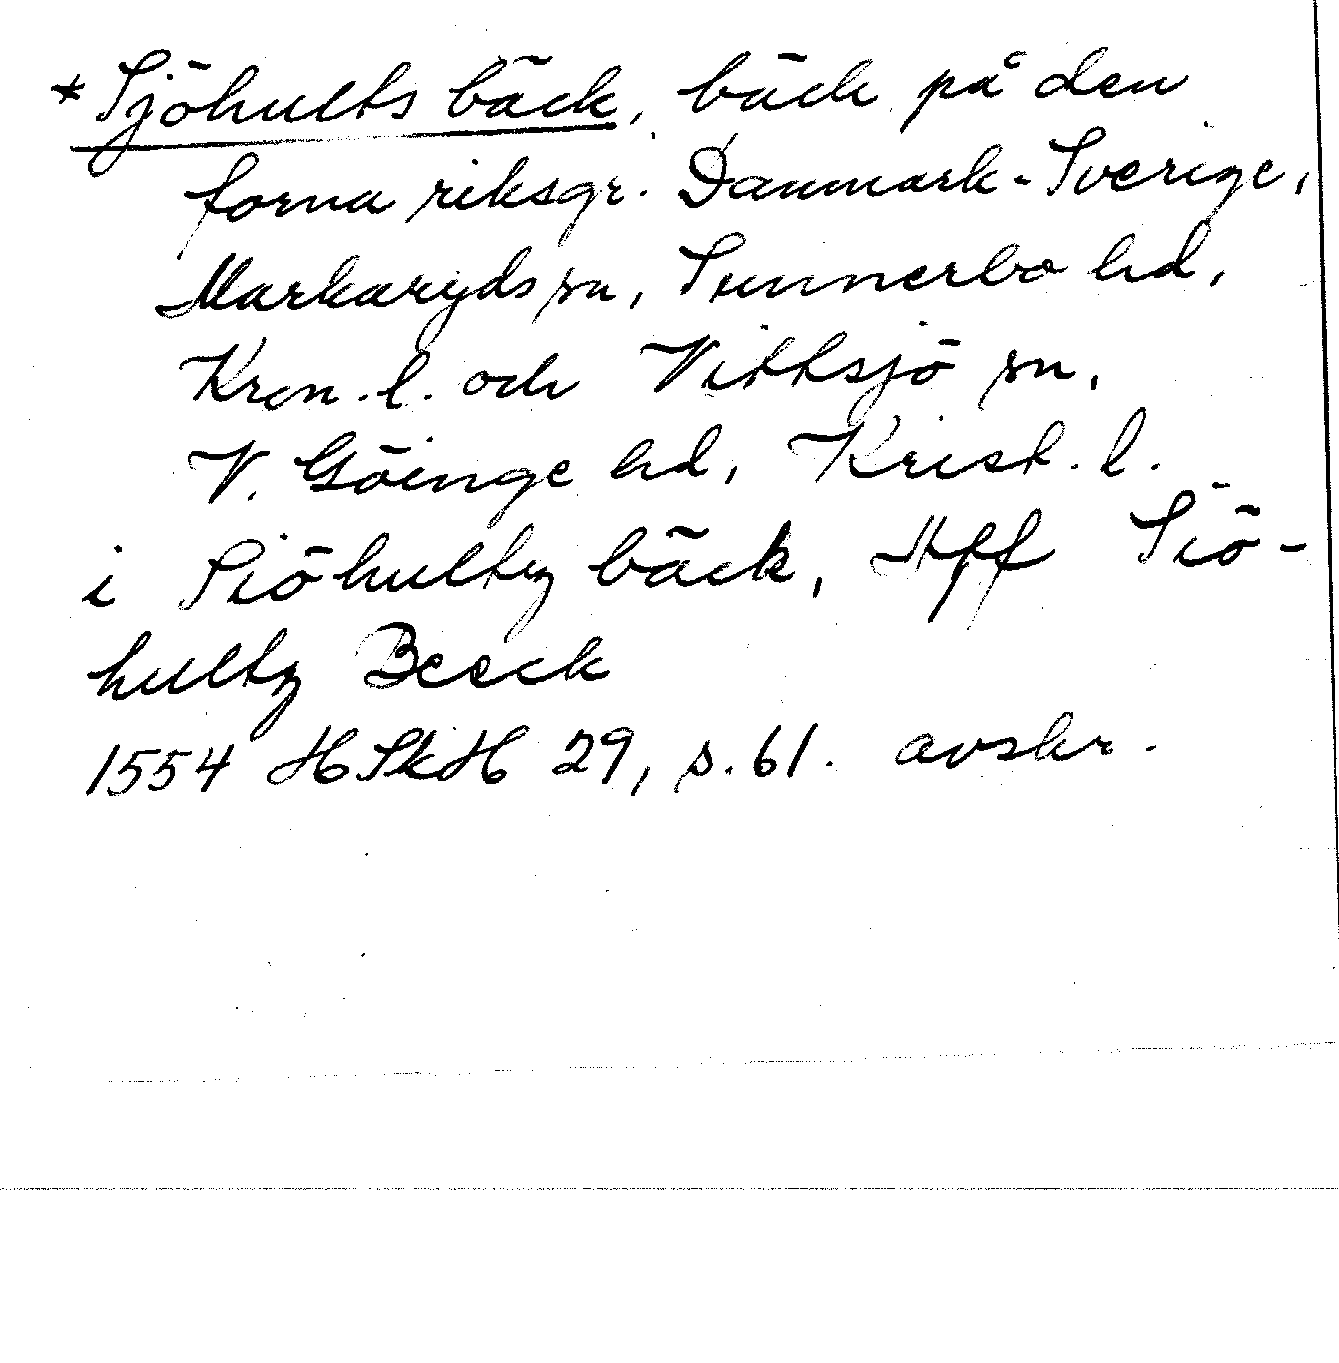 *Sjöhults bäck, bäck på den
forna riksgr. Danmark-Sverige,
Markaryds sn, Sunnerbo hd,
Kron. l. och Vittsjö sn,
V. Göinge hd, Krist. l.
i Siöhultz bäck, Aff Siö-
hultz Beeck
1554 HSkH 29, s. 61. avskr.